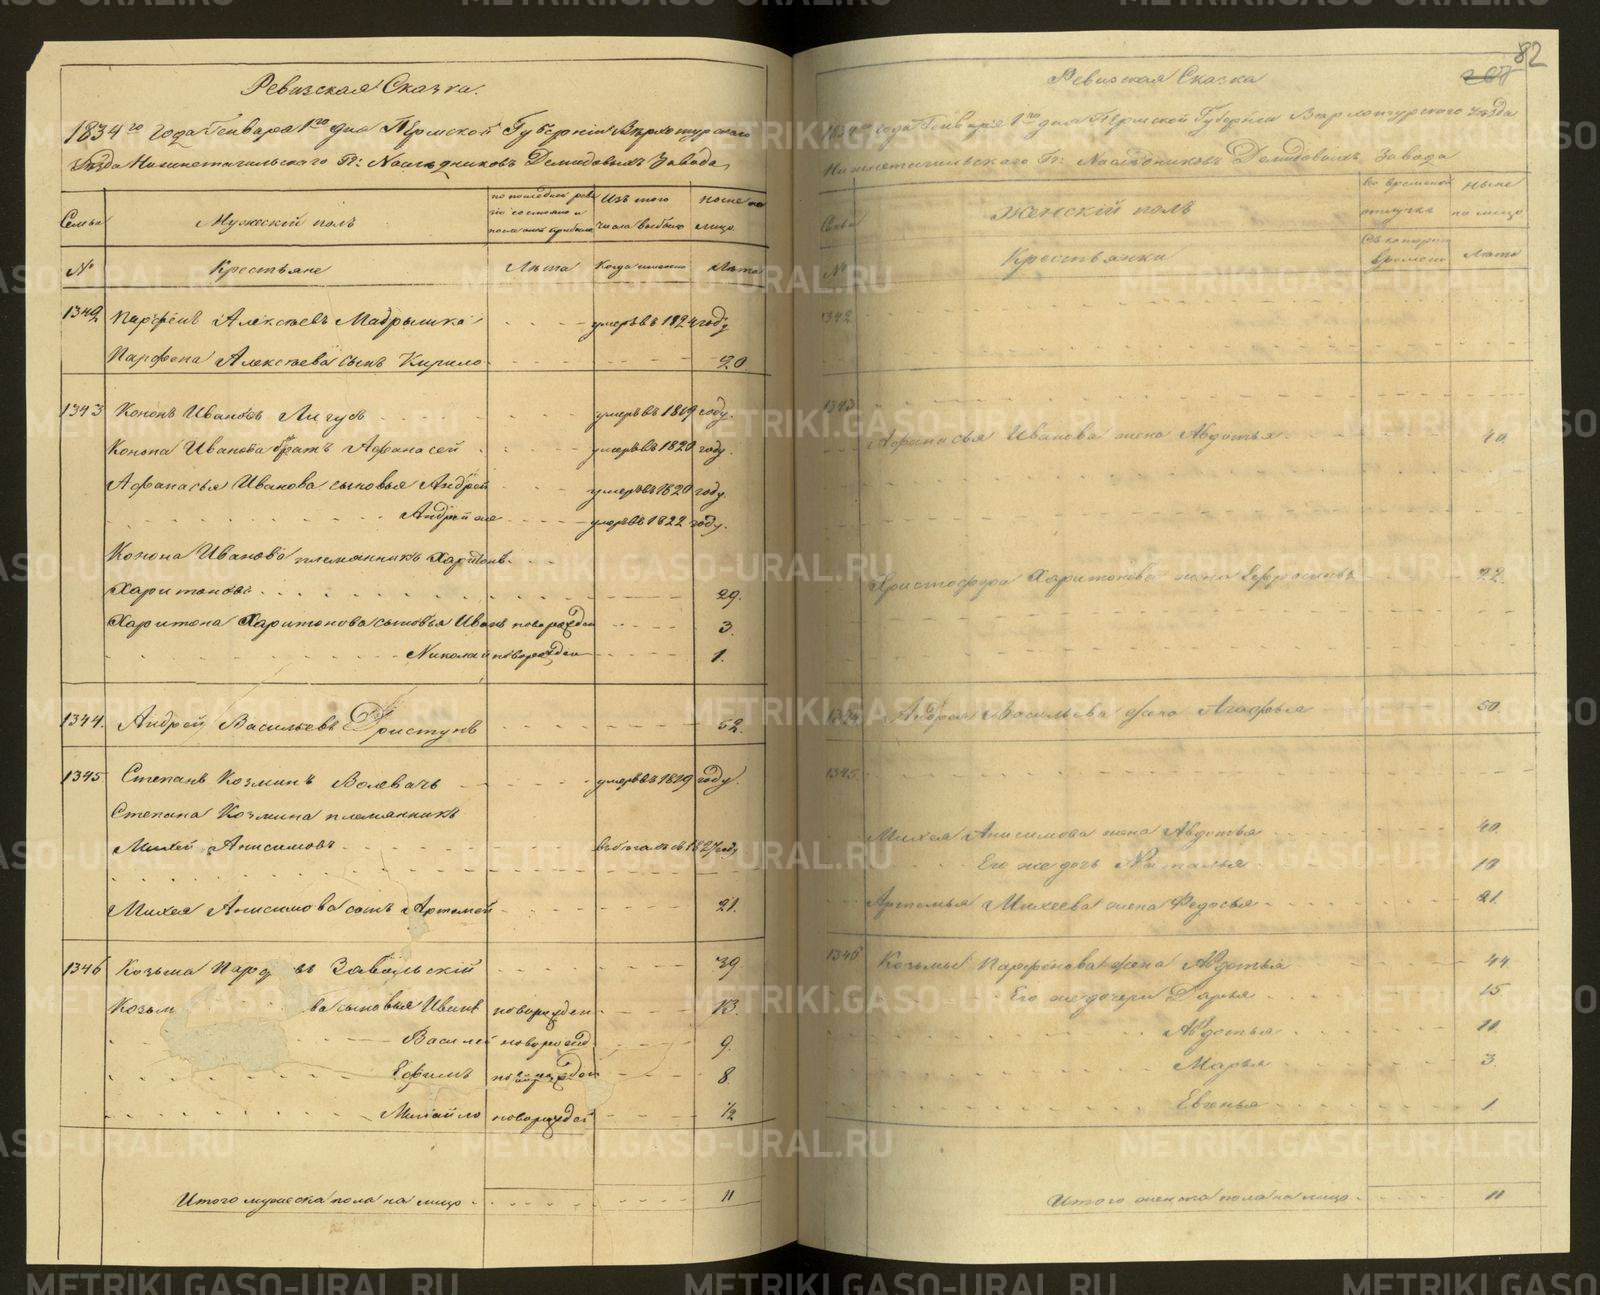 Ревизская Сказка.
1834го года Генваря 1го дня Пермской Губернии Верхотурского
Уезда Нижнетагильского Гг: Наследниковъ Демидовыхъ Завода
Семьи Мужескiй полъ по последней ревизiи состояло и после оной прибыло Изъ того числа выбыло ныне на лицо
№ Крестьяне Лета Когда именно Лета
1342 Парфенъ Алексеевъ умеръ въ 1824 году
Парфена Алексеева сынъ Кирило 30
1343 Кононъ Ивановъ Лигусъ умеръ въ 1819 году.
Конона Иванова братъ Афанасей умеръ въ 1820 году.
Афанасья Иванова сыновья Андрей умеръ въ 1820 году.
Андрей же умеръ въ 1822 году.
Конона Иванова племянникъ Харитонъ
Харитоновъ 29.
Харитона Харитонова сыновья Иванъ новорожден 3.
Николай новорожден 1.
1344. Андрей Васильевъ Тристунъ 52.
1345 Степанъ Козминъ Волевачъ умеръ въ 1819 году.
Степана Козмина племянникъ
Михей Анисимовъ въ бегахъ съ 1827 году
Михея Анисимова сынъ Артемей 21.
1346 Козьма Завальскiй 39
Козьм ва сыновья Иванъ новорожден 13.
Василей новорожд. 9.
Ефимъ 8.
Михайло новорожден 1/2
Итого мужеска пола на лицо 11
82
Ревизская Сказка
1834го года Генваря 1го дня Пермской Губернии Верхотурского Уезда
Нижнетагильского Гг: Наследниковъ Демидовыхъ Завода
Семьи Женскiй полъ Во временной отлучке ныне на лицо
№ Крестьянки Съ котораго времени Лета
1342
1343
Афанасья Иванова жена Авдотья 40.
Христофора Харитонова жена Ефросинья 22.
1344 Андрея Васильева жена Агафья 50
1345
Михея Анисимова жена Авдотья 40.
Его же дочь Наталья 10
Артемья Михеева жена Федосья 21.
1346 Козьмы Парфенова жена Авдотья 44
Его же дочери Дарья 15
Авдотья 11.
Марья 3.
Евгенья 1
Итого женска пола на лицо 11
METRIKI.GASO-URAL.RU